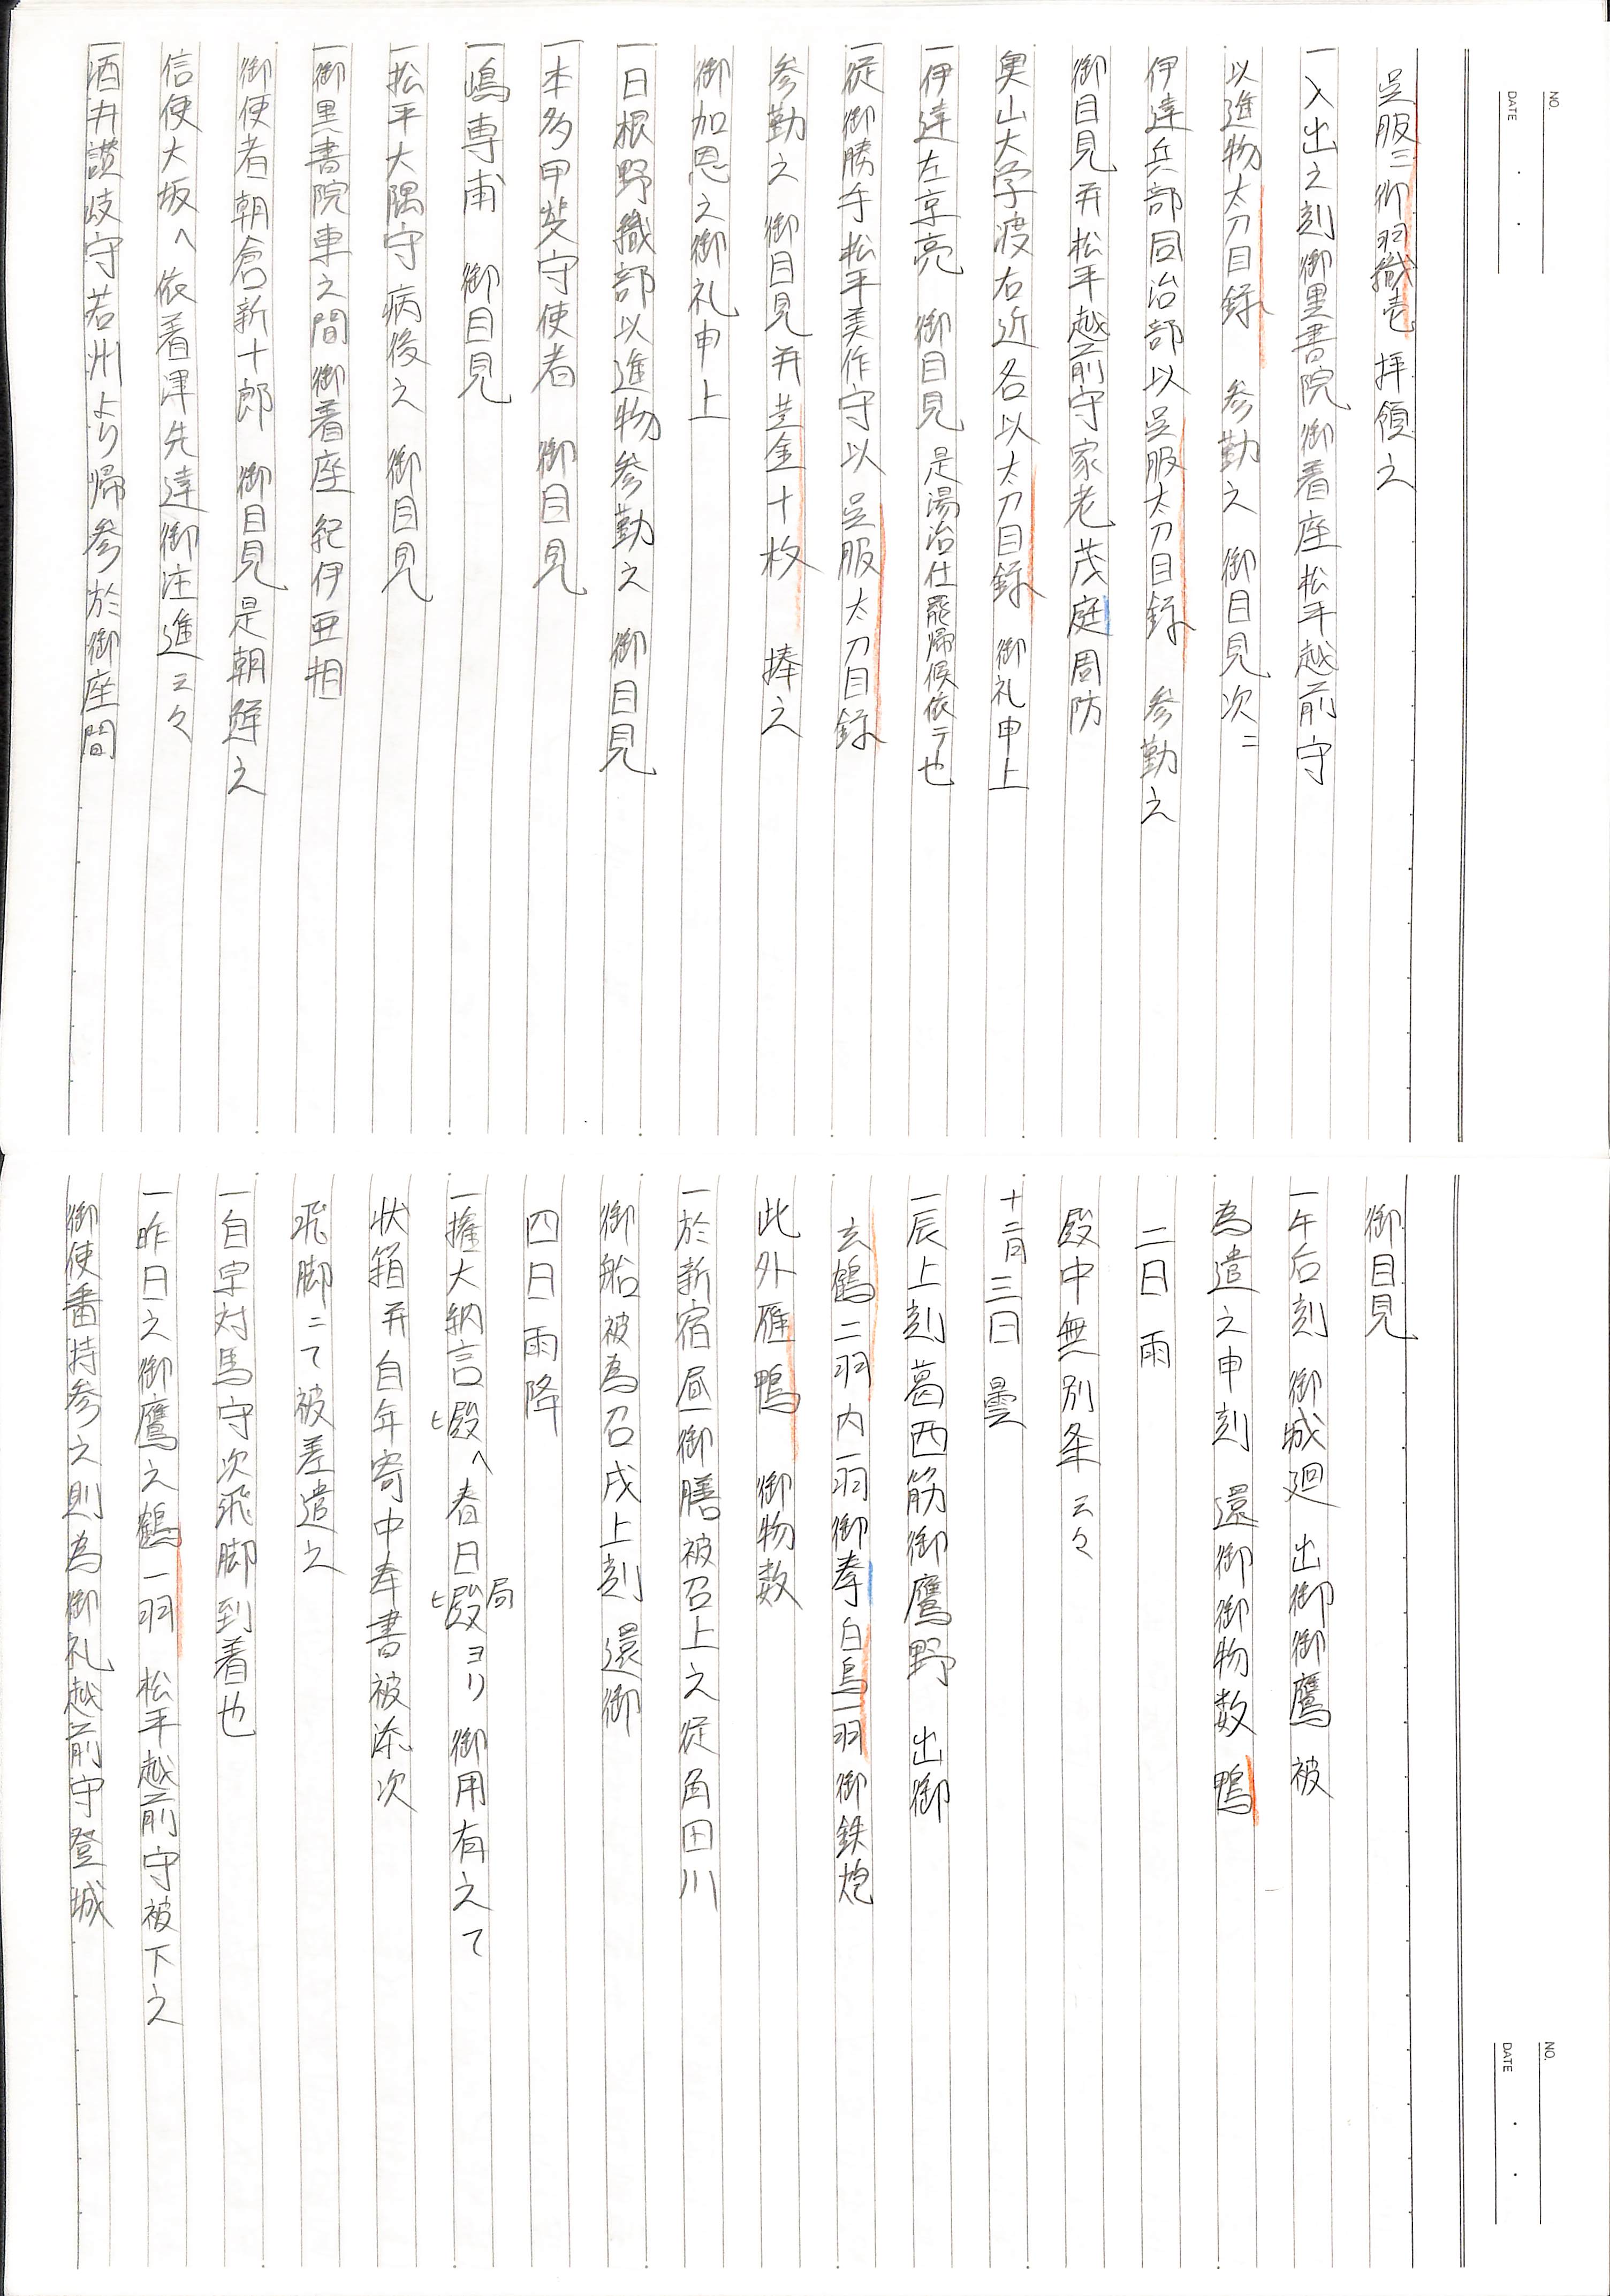 NO.
DATE
呉服二御羽織壱 拝領之
一入出之刻御黒書院御着座松平越前守
以進物太刀目録 参勤之 御目見次ニ
伊達兵部同治部以呉服太刀目録 参勤之
御目見并松平越前守家老茂庭周防
奥山大学渡右近各以太刀目録 御礼申上
一伊達左京亮 御目見是湯治仕罷帰候依テ也
一従御勝手松平美作守以呉服太刀目録
参勤之 御目見并黄金十枚 捧之
御加恩之御礼申上
一日根野織部以進物参勤之 御目見
一本多甲斐守使者 御目見
一嶋専甫 御目見
一松平大隅守病後之 御目見
一御黒書院車之間御着座紀伊亜相
御使者朝倉新十郎 御目見是朝鮮之
信使大坂へ依着津先達御注進云々
一酒井讃岐守若州より帰参於御座間
NO.
DATE
御目見
一午后刻 御城廻 出御御鷹被
為遣之申刻 還御御物数 鴨
二日 雨
殿中無別条云々
十二月三日 曇
一辰上刻葛西筋御鷹野 出御
玄鶴二羽内一羽御拳白鳥一羽御鉄炮
此外雁鴨 御物数
一於新宿昼御膳被召上之従角田川
御船被為召戌上刻 還御
四日 雨降
一権大納言殿へ春日殿ヨリ御用有之て
ヒ
ヒ
局
状箱并自年寄中奉書被添次
飛脚ニて被差遣之
一自宗対馬守次飛脚到着也
一昨日之御鷹之鶴一羽 松平越前守被下之
御使番持参之則為御礼越前守登城